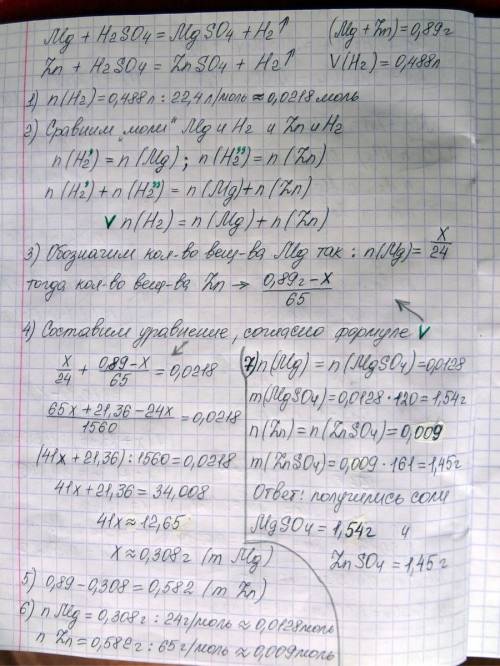 Mg + H2SO4 = MgSO4 + H2↑ (Mg+Zn)=0,89г
Zn + H2SO4 = ZnSO4 + H2↑ V(H2)=0,488л
1) n(H2)=0,488л : 22,4л/моль ≈ 0,0218моль
2) Сравним „моли" Mg и H2 и Zn и H2
n(H2')=n(Mg); n(H2'')=n(Zn)
n(H2')+n(H2'')=n(Mg)+n(Zn)
V n(H2)=n(Mg)+n(Zn)
3) Обозначим кол-во вещ-ва Mg так: n(Mg)= x/24
тогда кол-во вещ-ва Zn → (0,89г-x)/65
4) Составим уравнение, согласно формуле V
x/24 + (0,89-x)/65 = 0,0218
(65x+21,36-24x)/1560 = 0,0218
(41x+21,36):1560=0,0218
41x+21,36=34,008
41x≈12,65
x≈0,308г (m Mg)
5) 0,89-0,308=0,582 (m Zn)
6) n Mg=0,308г : 24г/моль ≈ 0,0128моль
n Zn=0,582г : 65г/моль ≈ 0,009моль
7) n(Mg)=n(MgSO4)=0,0128
m(MgSO4)=0,0128·120=1,54г
n(Zn)=n(ZnSO4)=0,009
m(ZnSO4)=0,009·161=1,45г
Ответ: получились соли
MgSO4=1,54г и
ZnSO4=1,45г